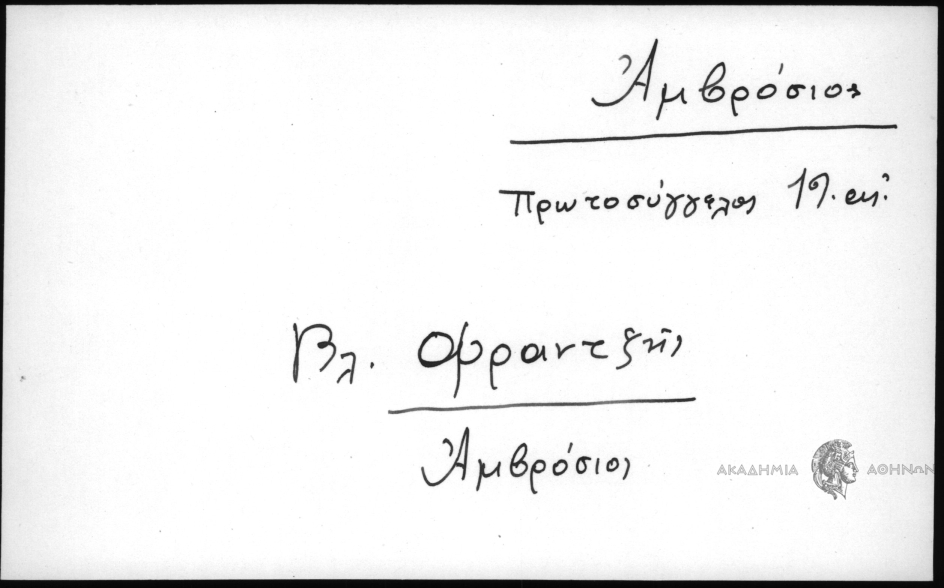 Ἀμβρόσιος
Πρωτοσύγγελος 19. αἰ.
Βλ. Φραντζῆς
Ἀμβρόσιος
ΑΚΑΔΗΜΙΑ ΑΘΗΝΩΝ